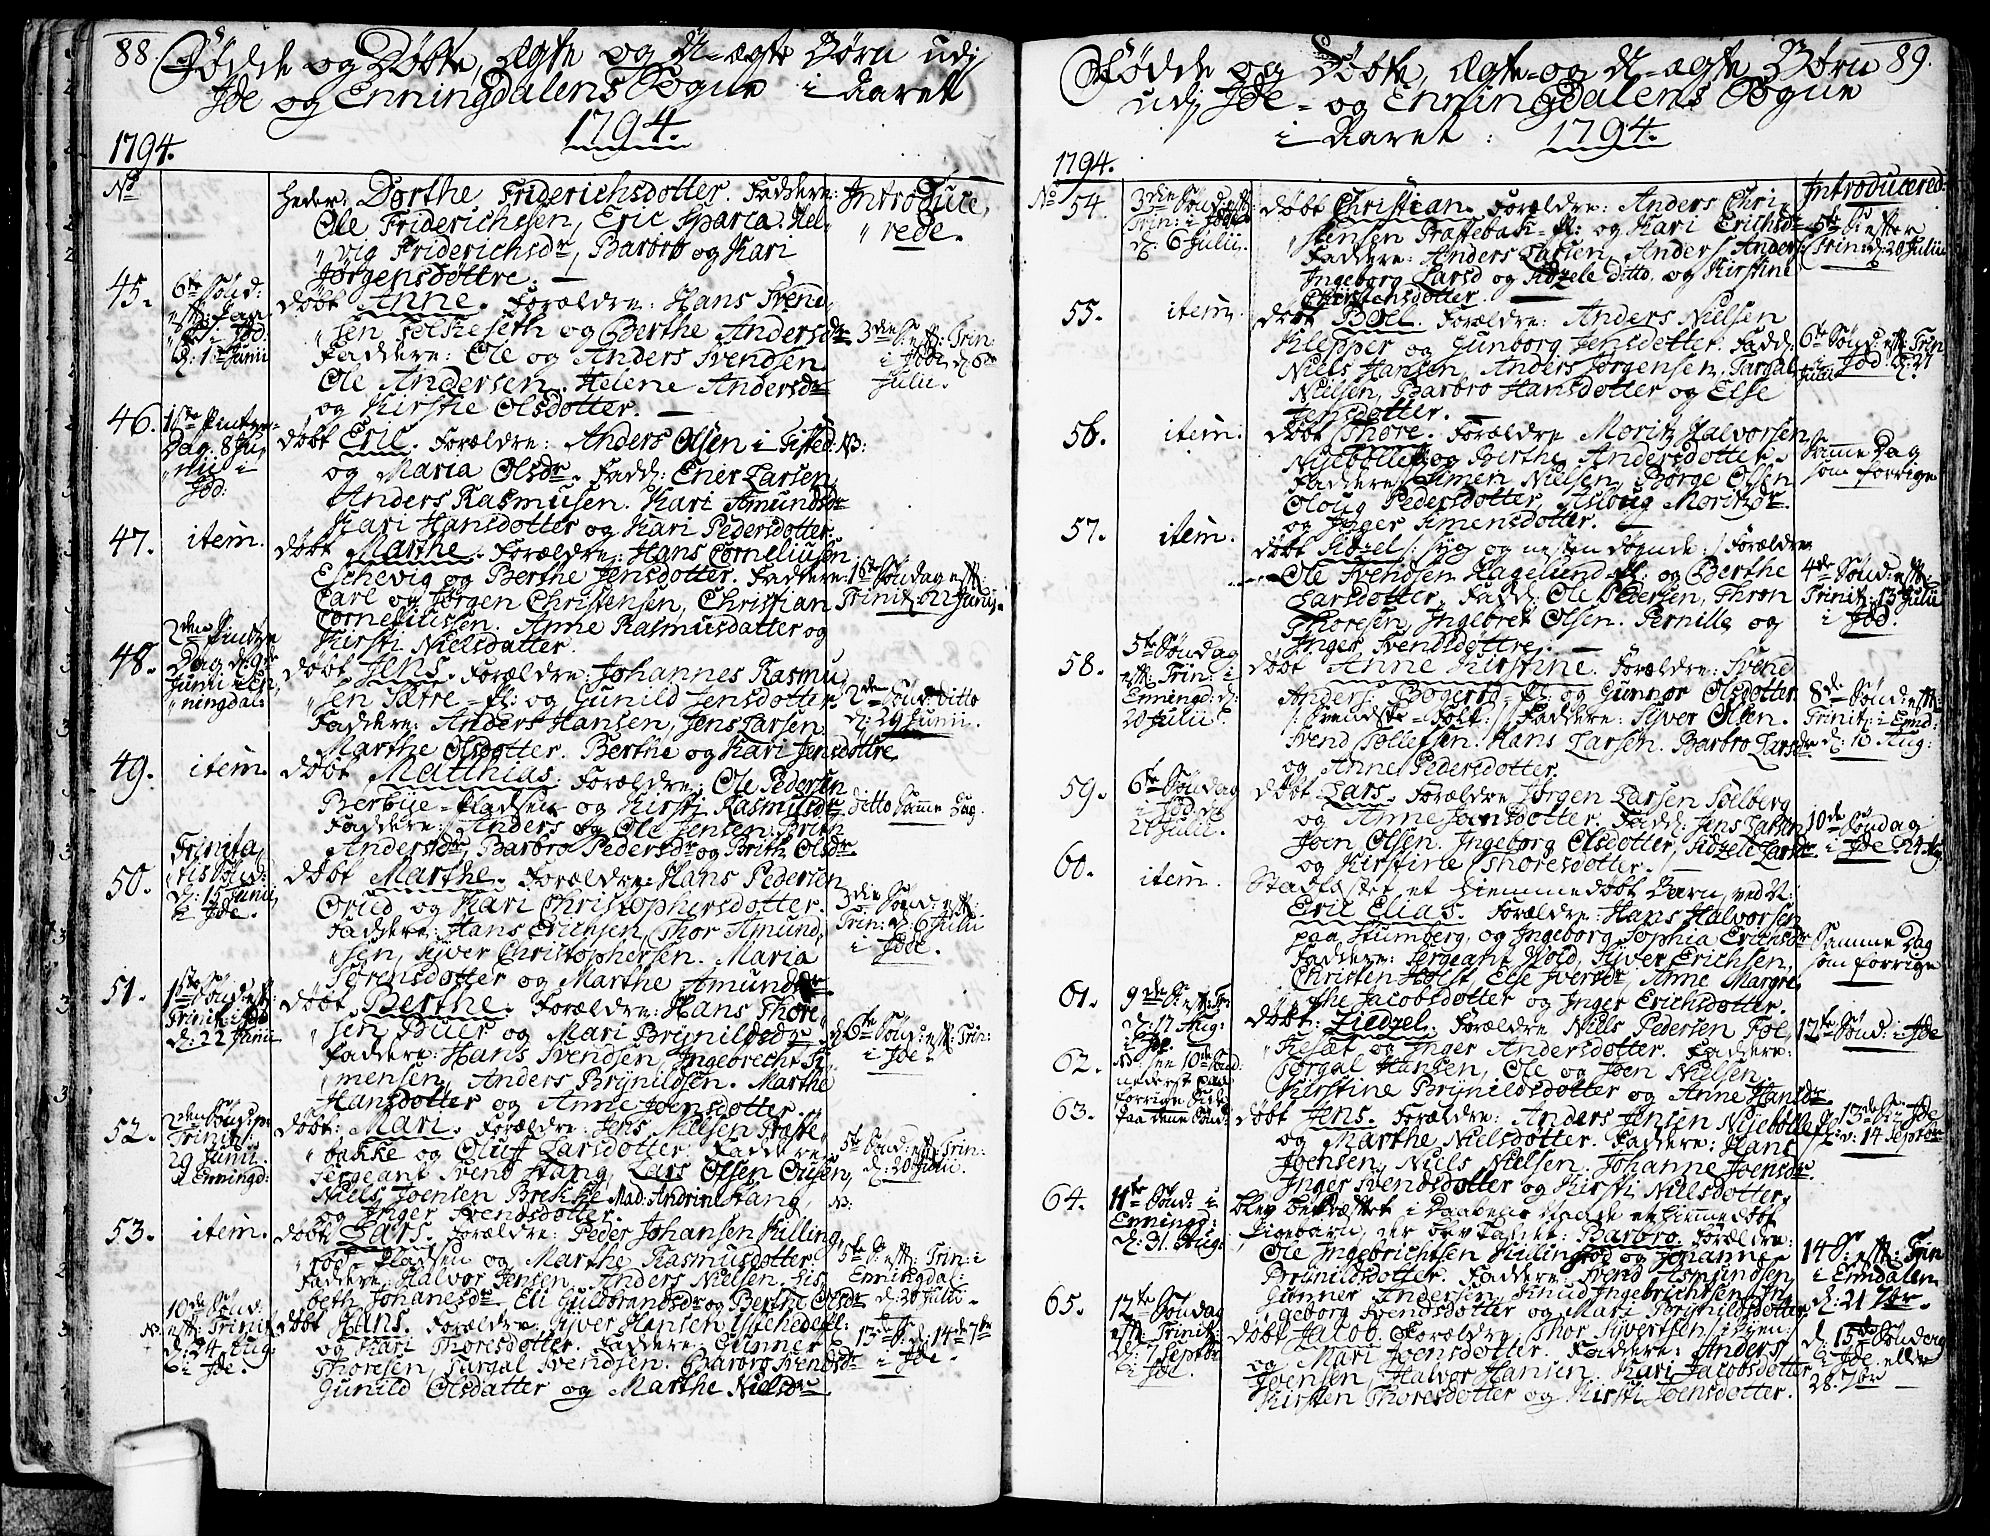 88. Fødde og Døbte, Ægte og U-ægte Børn udj
Jde og Enningdalens Sogne i Aaret
1794.
1794.
No
heder: Dorthe Friderichsdotter. Faddere: Introduce,
Ole Friderichssen, Eric Hel,
vig Friderichsdr, Barbro og Kari
rede.
Jørgensdøttre.
45. 6te Sønd:
i Jdd: d: 1ste Junii
døbt Anne. Forældre: Hans Svend,
sen Folkeseth og Berthe Andersdr
Faddere: Ole og Anders Svendsen
Ole Andersen. Helene Andersdr
og Kirstie Olsdotter.
3die S: eft: Trin:
i Jdd: d: 6te
Julii.
46. 1ste Pintze-
Dag. 8 Ju,
nii i
Jdd:
døbt Eric. Forældre: Anders Olsen i Tisted. NB:
og Maria Olsdr. Fadd: Ener Larsen
Anders Rasmusen. Kari Amundsdr
Kari Hansdotter og Kari Pedersdotter.
47. item.
døbt Marthe. Forældre: Hans Corneliusen
Eschevig og Berthe Jensdotter. Faddere:
Carl og Jørgen Christensen, Christian
Corneliussen. Anne Rasmusdatter og
Kirsti Nielsdatter.
1ste Søndag eft:
Trinit: 22 Junij.
48. 2den Pintze
Dag d: 9de
Junii i En,
ningdal:
døbt Jens. Forældre: Johannes Rasmu,
sen Sætre-Pl: og Gunild Jensdotter.
Faddere: Anders Hansen, Jens Larsen
Marthe Olsdotter. Berthe og Kari Jensdøttre.
2den Sønd: ditto
d: 29 Junii.
49. item.
døbt Matthias. Forældre: Ole Pedersen
Berbye-Pladsen og Kirsti Rasmusdr
Faddere: Anders og Ole Jensen. Brith
Andersdr, Barbro Pedersdr og Brith Olsdr.
ditto Samme Dag.
50. Trinita,
tis Sønd:
d: 15 Junii,
i Jde.
døbt Marthe. Forældre: Hans Pedersen
Orud og Kari Christophersdotter.
Faddere: Hans Erichsen, Thor Amund,
sen, Syver Christophersen. Maria
Sørensdotter og Marthe Amundsdr.
3die Sønd: eft:
Trin: d: 6 Julii
i Jde.
51. 1ste Sønd: eft:
Trinit: i Jdd
d: 22 Junii
døbt Berthe. Forældre: Hans Thore,
sen Buer og Mari Brynildsdr
Faddere: Hans Svendsen, Ingebrecht Si,
mensen, Anders Brynildsen. Marthe
Hansdotter og Anne Joensdotter.
6te Sønd: eft: Trin:
i Jde.
52. 2den Sønd: p:
Trinit:
29 Junii.
i Enningd:
døbt: Mari. Forældre: Jens Nilsen Præste,
bakke og Oluff Larsdotter. Faddere:
Sergeant Svend Stang, Lars Olsen
Niels Joensen Brekke Mad: Andrin Stang
og Inger Svendsdotter.
5te Sønd: eft: Trin:
d: 20 Julii.
NB:
53. item.
døbt Lars. Forældre: Peder Johansen Killing,
rød Pladsen og Marthe Rasmusdotter.
Faddere: Halvor Jensen, Anders Nielsen. Lis,
beth Johanesdr. Eli Guldbrandsdr og Berthe Olsdr
5te S: eft: Trin: i
Enningdal:
d: 20 Julii.
NB: 10de Sønd:
eft: Trinit
d: 24 Aug:
i Jde.
døbt Hans. Forældre: Syver Hansen
og Kari Thoresdotter. Faddere: Gunner
Thoresen, Targal Svendsen. Barbro Svendsdr
Gunild Olsdatter og Marthe Nielsdr.
13de S: d: 14de 7br
i Jde.
Fødde og Døbte, Ægte- og U-ægte Børn 89.
udj Jde- og Enningdalens Sogne
i Aaret: 1794.
1794.
No 54. 3die Sønd: eft
Trin: i Jdde
d: 6 Julii
døbt Christian. Forældre: Anders Chri,
stensen Præstebak-Pl: og Kari Erichsdr
Faddere: Anders Larsen, Anders Anders:
Ingeborg Larsd og Sidzele ditto og Kirstine
Christensdotter.
Introducered:
5te S: efter
Trin: d: 20 Julii
55. item.
døbt Boel. Forældre: Anders Nielsen
Klepper og Gunborg Jensdotter. Fadd:
Niels Hansen, Anders Jørgensen, Targal
Nielsen, Barbro Hansdotter og Else
Jensdotter.
6te Sønd: eft: Trin
i Jdd: d: 27
Julii
56. item.
døbt Thore. Forældre Moritz Halvorsen
Nisebølle og Berthe Andersdotter.
Faddere: Simen Nielsen, Børge Olsen
Oloug Pedersdotter, Asloug Moritzdr.
og Inger Simensdotter.
Samme Dag
som forrige
57. item.
døbt Sidzel /: syg og næsten døende :/ Forældre
Ole Svendsen Hagelund-Pl: og Berthe
Larsdotter. Fadd: Ole Pedersen, Thron
Thoresen, Ingebret Olsen. Pernille og
Inger Svendsdøttre.
4de Sønd: eft:
Trinit: 13 Julii
i Jdd.
58. 5te Søndag
eft: Trin: i
Enningd: d:
20 Julii.
døbt Anne Kirstine. Forældre: Svend
Anders: Bogerød-Pl: og Gunnor Olsdotter
/: Svendske-Folk :/ Faddere: Syver Olsen.
Svend Tollefsen. Hans Larsen. Barbro Larsdr
og Anne Pedersdotter.
8de Sønd: eft
Trinit: i Ennd:
d: 10 Aug:
59. 6te Søndag
i Jdd d:
27 Julii.
døbt Lars. Forældre Jørgen Larsen Solberg
og Anne Joensdotter. Fadd: Jens Larsen
Joen Olsen. Ingeborg Olsdotter, Sidzele Larsdr
og Kirstine Thoresdotter.
10de Søndag
i Jde 24 Aug
60. item.
Stadfæstet et hiemmedøbt Barn, ved N:
Eric Elias. Forældre: Hans Halvorsen
paa Stumberg, og Ingeborg Sophia Erichsdr
Faddere: Sergeant Wold, Syver Erichsen,
Christen Holst Else Iversdr, Anne Margre,
the Jacobsdotter og Inger Erichsdotter.
Samme Dag
som forrige
61. 9de S: eft: Tr:
d: 17 Aug:
i Jde.
døbt: Zidzel. Forældre Niels Pedersen Fol,
keset og Inger Andersdotter. Faddere:
Torgal Hansen, Ole og Joen Nielsen,
Kirstine Brynildsdotter og Anne Hansdr.
12te Sønd: i Jde
62. NB: see 10de Sønd:
nederst paa
forrige Side
63. paa denne Sønd:
døbt Jens. Forældre: Anders Jensen Nisebølle
og Marthe Nielsdotter. Faddere: Hans
Joensen, Niels Nielsen. Johanne Joensdr.
Inger Svendsdotter og Kirsti Nielsdotter.
13de S: i Jde
d: 14 Septbr
64. 11te Sønd: i
Enningd:
d: 31 Aug:
blev bekræftet i Daabens Naade et hiemmedøbt
Pigebarn, der blev kaldet: Barbro. Forældre:
Ole Ingebrichtsen Kulinrød og Johanne
Brynildsdotter. Faddere: Svend Asmundsen,
Gunner Andersen, Knud Ingebrichtsen, In,
geborg Svendsdotter og Mari Brynildsdotter
14 S: eft: Trin
i Enndalen
d: 21 7br.
65. 12te Søndag
eft: Trinit:
d: 7 Septbr
i Jde.
døbt Jacob. Forældre: Thor Syvertsen i Byen:
og Mari Joensdotter. Faddere: Anders
Joensen, Halvor Hansen. Kari Jacobsdotter
Kirsten Thoresdotter og Kirsti Joensdotter.
d: 15de Søndag
i Jde eller
28. 7br